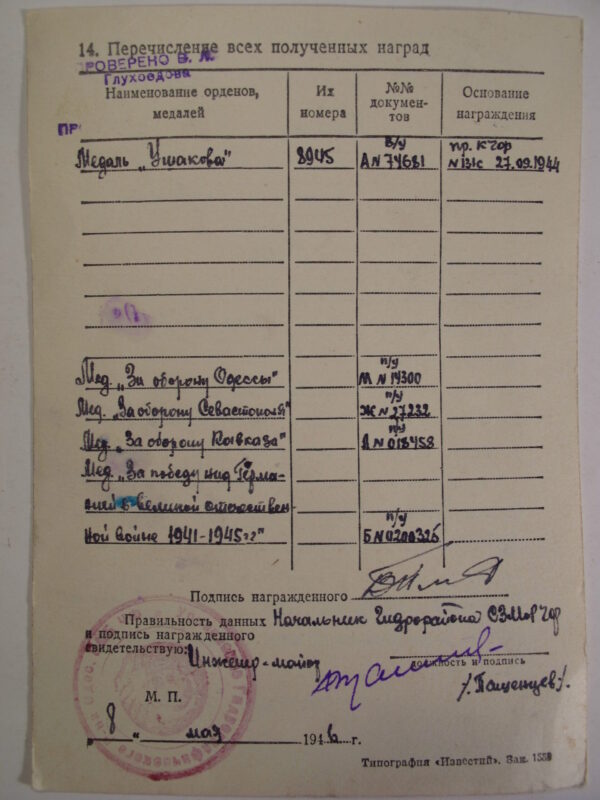 14. Перечисление всех полученных наград
РОВЕРЕНО В. Л.
Глуховдова
Наименование орденов, медалей
Их номера
№№ документов
Основание награждения
ПР
Медаль „Ушакова" 8945 в/у А N 74681 пр. КЧФ N 131с 27.09.1944
Мед. „За оборону Одессы" п/у М N 14300
Мед. „За оборону Севастополя" п/у Ж N 27232
Мед. „За оборону Кавказа" п/у А N 018458
Мед. „За победу над Герма-
нией в великой отечествен-
ной войне 1941-1945 гг" п/у Б N 0200326
Подпись награжденного
Правильность данных Начальник Гидрорайона
и подпись награжденного
свидетельствую: Инженер-майор
должность и подпись
/. Пащенцев /.
М. П.
8 " мая 1946 г.
Типография «Известий». Зак. 1558